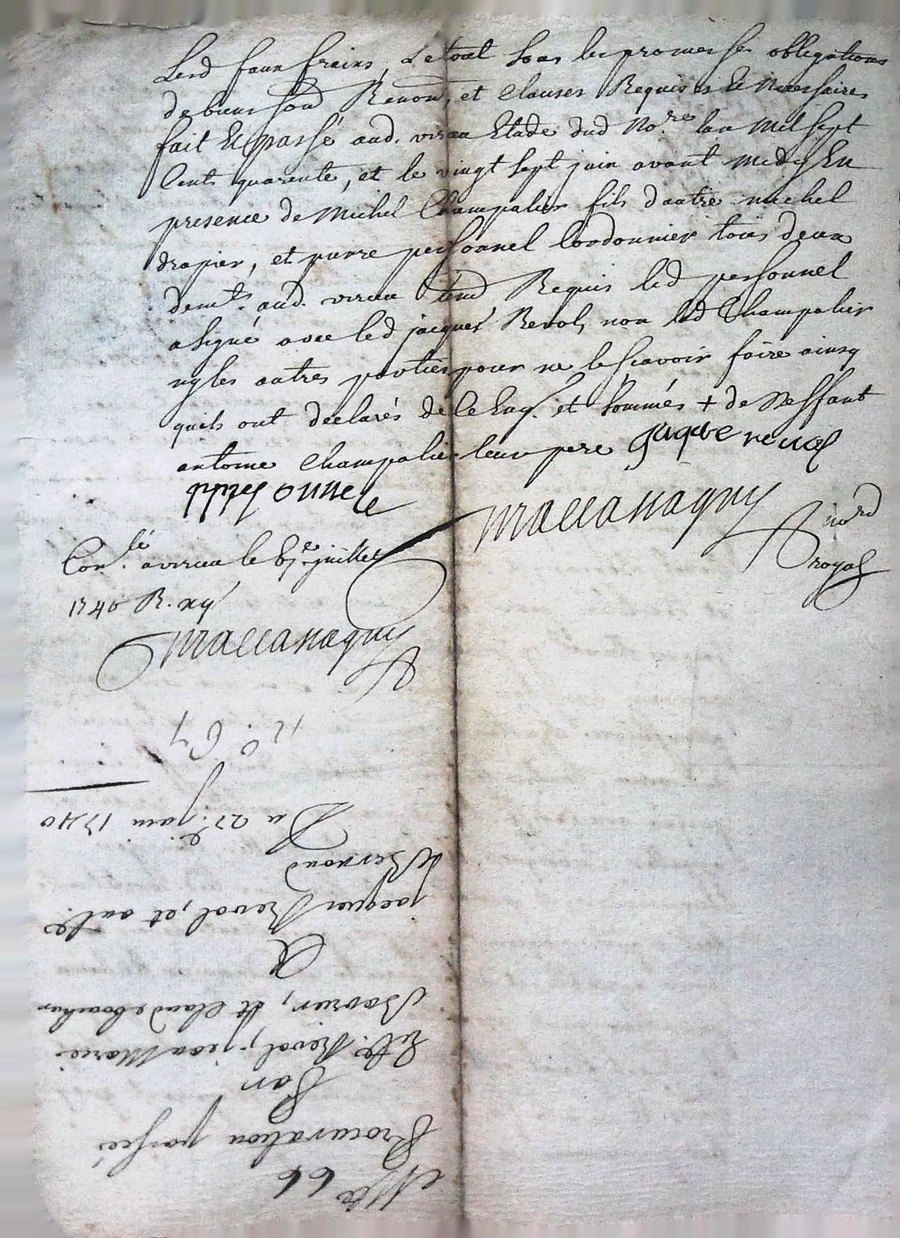 Lesd faux fraix, Le tout sous les promesses obligations
de biens sond Renon, et Clauses Requises & Necessaires
fait Et passé aud. virieu Etude dud No.re lan Mil sept
Cents quarente, et le vingt sept juin avant midy En
presence de Michel Champalier fils d'autre michel
drapier, et pierre personnel Cordonnier tous deux
demts. aud. virieu Requis led personnel
a signé avec led jacques Revol, non led Champalier
ny les autres parties pour ne le sçavoir faire ainsy
quils ont declarés de le Enq. et sommés + de Deffunt
antoine Champalier leur pere Jaque revol
pperonnel Maccanagny nore
royal
Con.lé a virieu le 6e juillet
1740 R. xy
Maccanagny
No. 67
Nto 66
Procuration passée
Par
Revol, jean Marie
et Claude
A
jacques Revol, et
de Bernard
Du 27e juin 1740